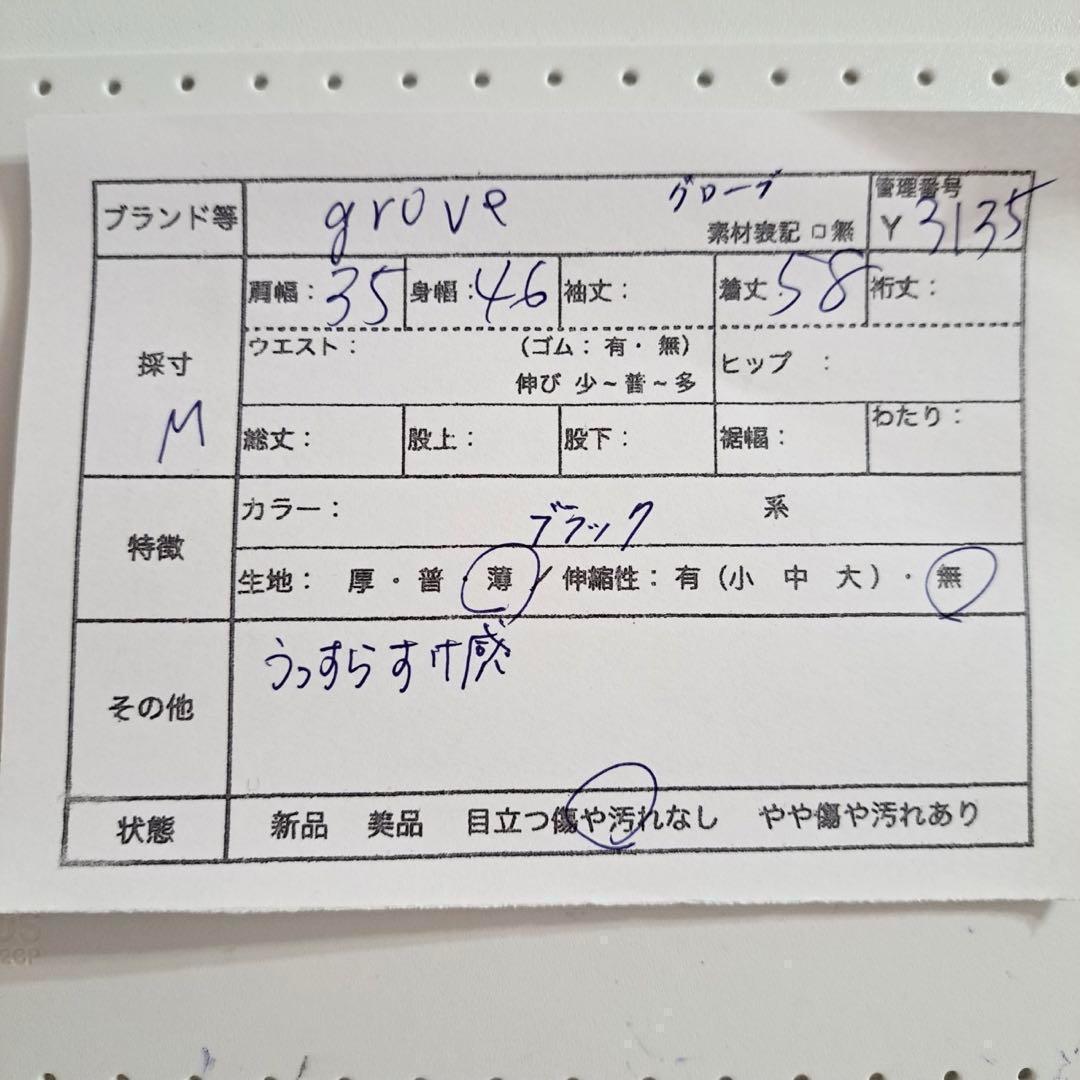 ブランド等 grove グローブ 素材表記 □ 無 管理番号 Y 3135
採寸 M
肩幅：35 身幅：46 袖丈： 着丈：58 裄丈：
ウエスト： （ゴム：有・無） 伸び 少～普～多 ヒップ ：
総丈： 股上： 股下： 裾幅： わたり：
特徴
カラー： ブラック 系
生地： 厚・普・薄 / 伸縮性：有（小 中 大）・無
その他 うっすらすけ感
状態 新品 美品 目立つ傷や汚れなし やや傷や汚れあり